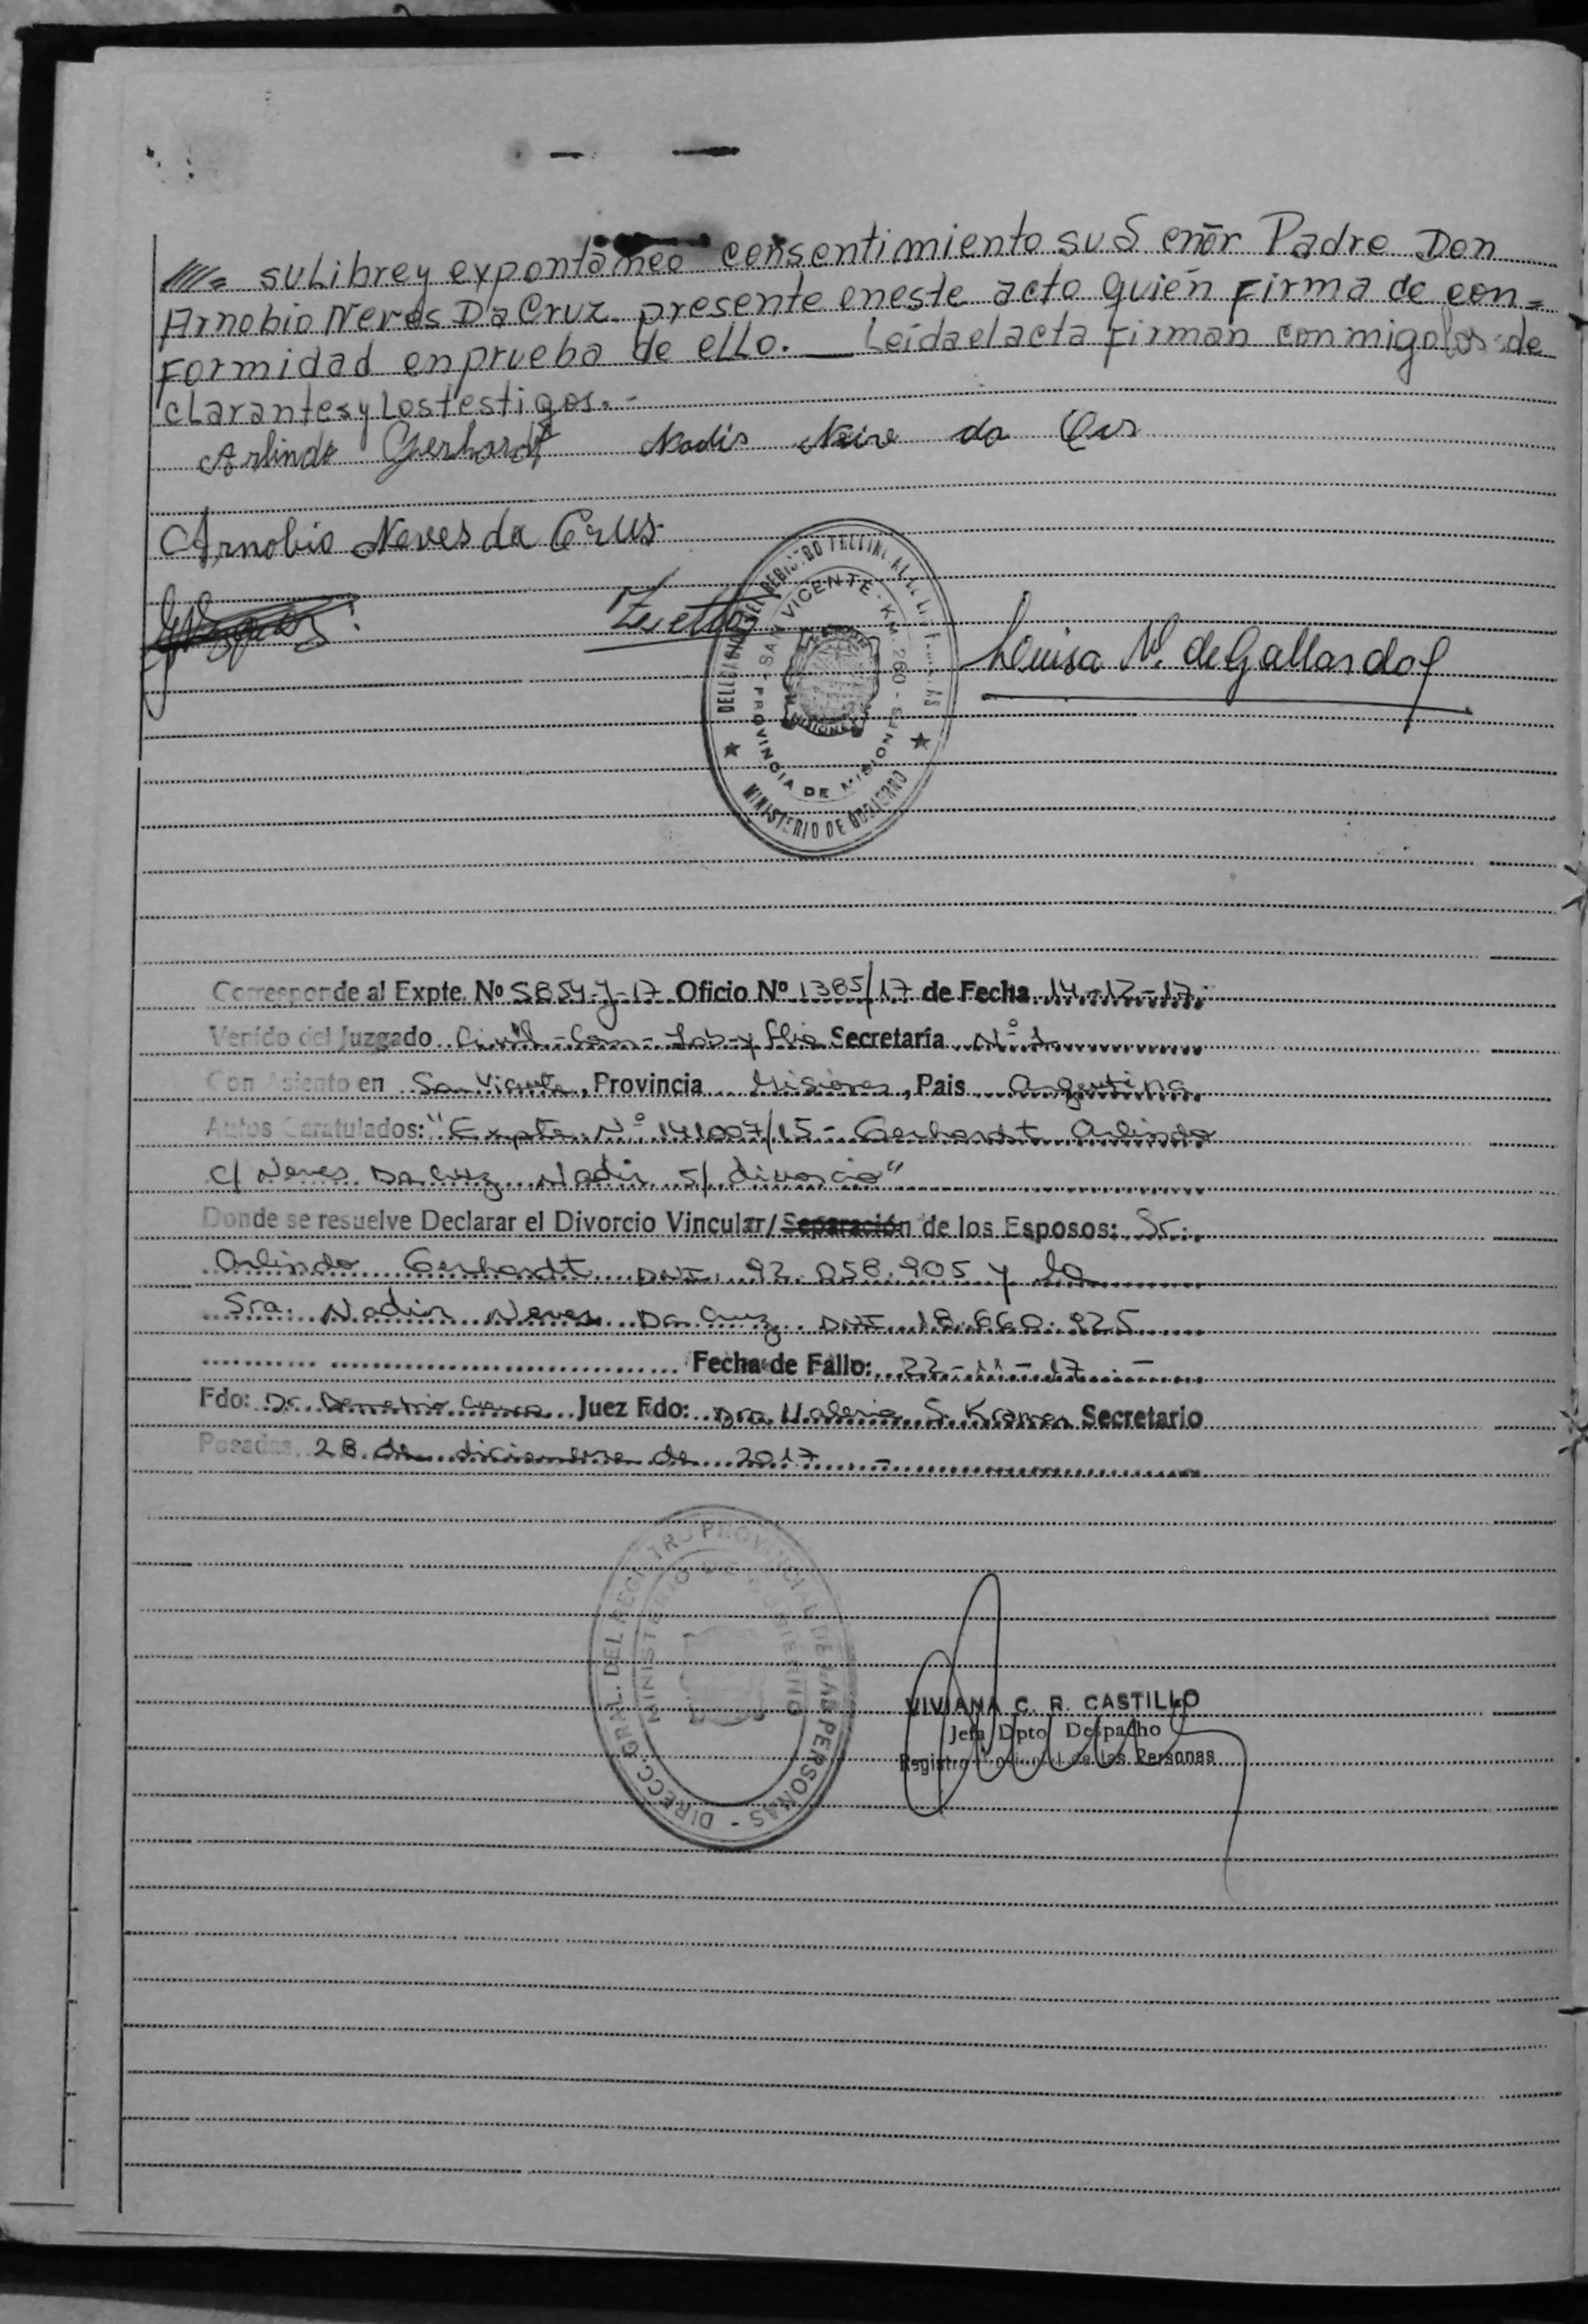 su Libre y expontaneo consentimiento su Señor Padre Don
Arnobio Neves Da Cruz presente en este acto quién Firma de con=
Formidad en prueba de ello. — Leída el acta Firman conmigo los de
clarantes y Los testigos.-
Arlindo Gerhardt Nadis Neive da Crus
Arnobio Neves da Crus
DELEGACION DEL REGISTRO
SAN VICENTE - KM 260 - PROVINCIA DE MISIONES
MISIONES
MINISTERIO DE GOBIERNO
Luisa N. de Gallardo
Corresponde al Expte. Nº 5854-J-17 Oficio Nº 1385/17 de Fecha 14-12-17.
Venido del Juzgado Civil-Com-Lab-y flia Secretaría Nº 1
Con Asiento en San Vicente, Provincia Misiones, Pais Argentina
Autos Caratulados: "Expte Nº 141007/15 - Gerhardt Arlindo
c/ Neves Da Cruz Nadir s/ divorcio"
Donde se resuelve Declarar el Divorcio Vincular/Separación de los Esposos: Sr.
Arlindo Gerhardt DNI. 92.058.905 y la
Sra. Nadir Neves Da Cruz DNI 18.660.925
Fecha de Fallo: 22-11-17.-
Fdo: Dr. Demetrio Juez Fdo: Dra. Valeria S. Kramer Secretario
Posadas 28 de diciembre de 2017.-
DIRECC. GRAL. DEL REGISTRO PROVINCIAL DE LAS PERSONAS -
MINISTERIO DE GOBIERNO
VIVIANA C. R. CASTILLO
Jefa Dpto Despacho
Registro Provincial de las Personas